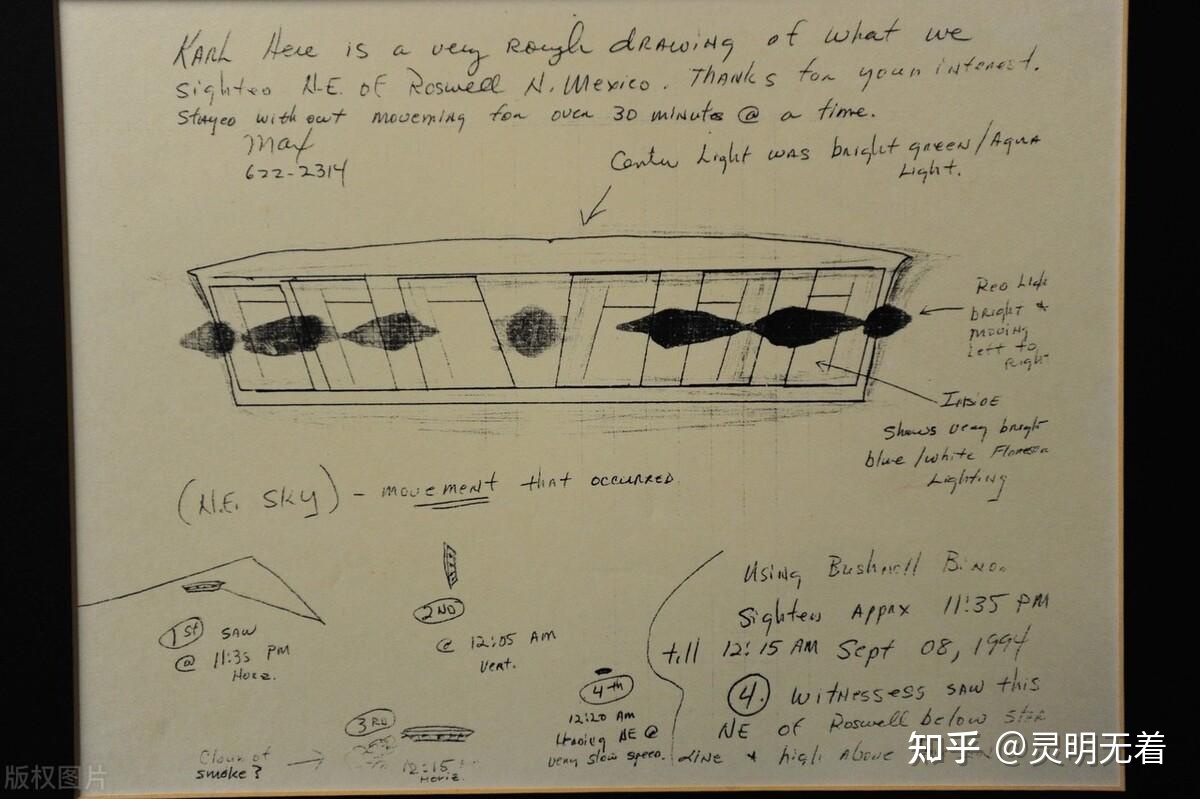 Karl Here is a very rough drawing of what we
sighted N.E. of Roswell N. Mexico. Thanks for your interest.
Stayed without moveming for over 30 minutes @ a time.
Max
622-2314
Center Light was bright green/Aqua
Light.
Red
bright &
moving
Left to
Right
Inside
Shows very bright
blue/white
Lighting
(N.E. SKY) - movement that occurred.
1st saw
@ 11:35 PM
Horz.
2ND
@ 12:05 AM
Vert.
3RD
Cloud of
smoke?
12:15
Horiz.
4th
12:20 AM
NE @
very slow speed.
Using Bushnell Binoc
Sighted Apprx 11:35 PM
till 12:15 AM Sept 08, 1994
4. witnessess saw this
NE of Roswell below star
Line & high above
知乎 @灵明无着
版权图片